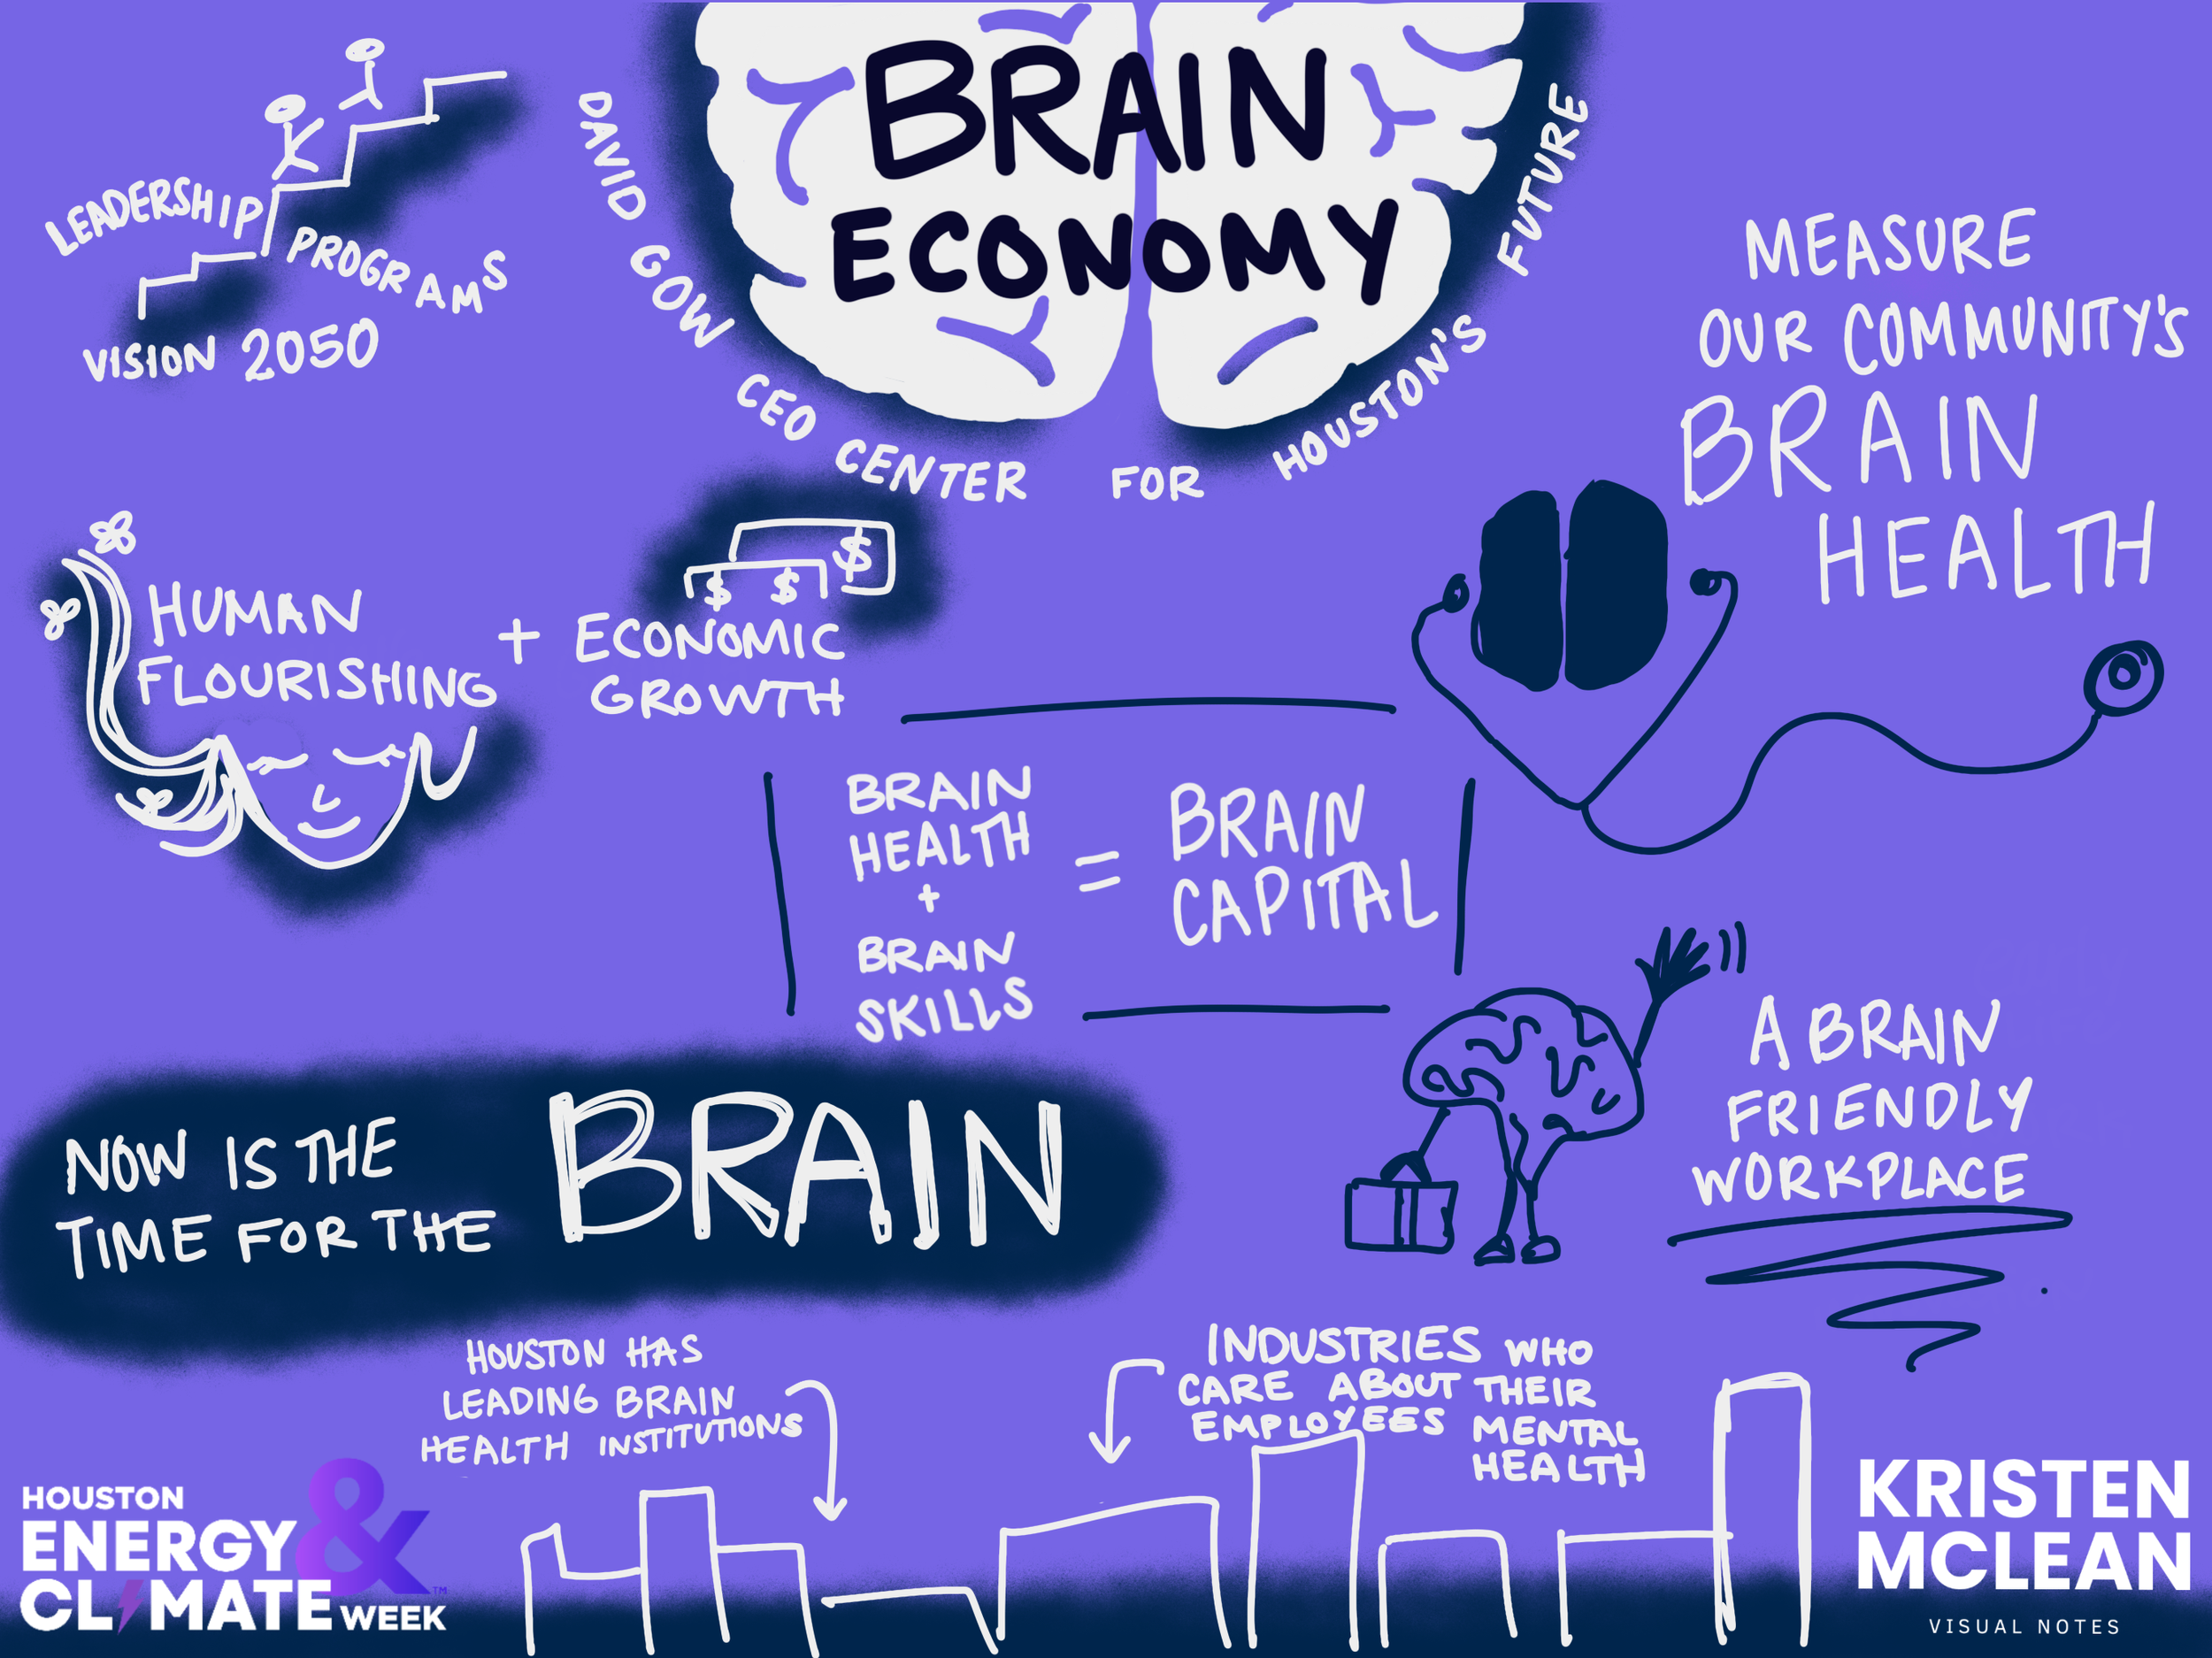 BRAIN
ECONOMY
DAVID GOW CEO CENTER FOR HOUSTON'S FUTURE
LEADERSHIP
PROGRAMS
VISION 2050
MEASURE
OUR COMMUNITY'S
BRAIN
HEALTH
HUMAN
FLOURISHING
+
$ $ $
ECONOMIC
GROWTH
BRAIN
HEALTH
+
BRAIN
SKILLS
=
BRAIN
CAPITAL
A BRAIN
FRIENDLY
WORKPLACE
NOW IS THE
TIME FOR THE
BRAIN
HOUSTON HAS
LEADING BRAIN
HEALTH INSTITUTIONS
INDUSTRIES WHO
CARE ABOUT THEIR
EMPLOYEES MENTAL
HEALTH
HOUSTON
ENERGY &
CLIMATE WEEK ™
KRISTEN
MCLEAN
VISUAL NOTES